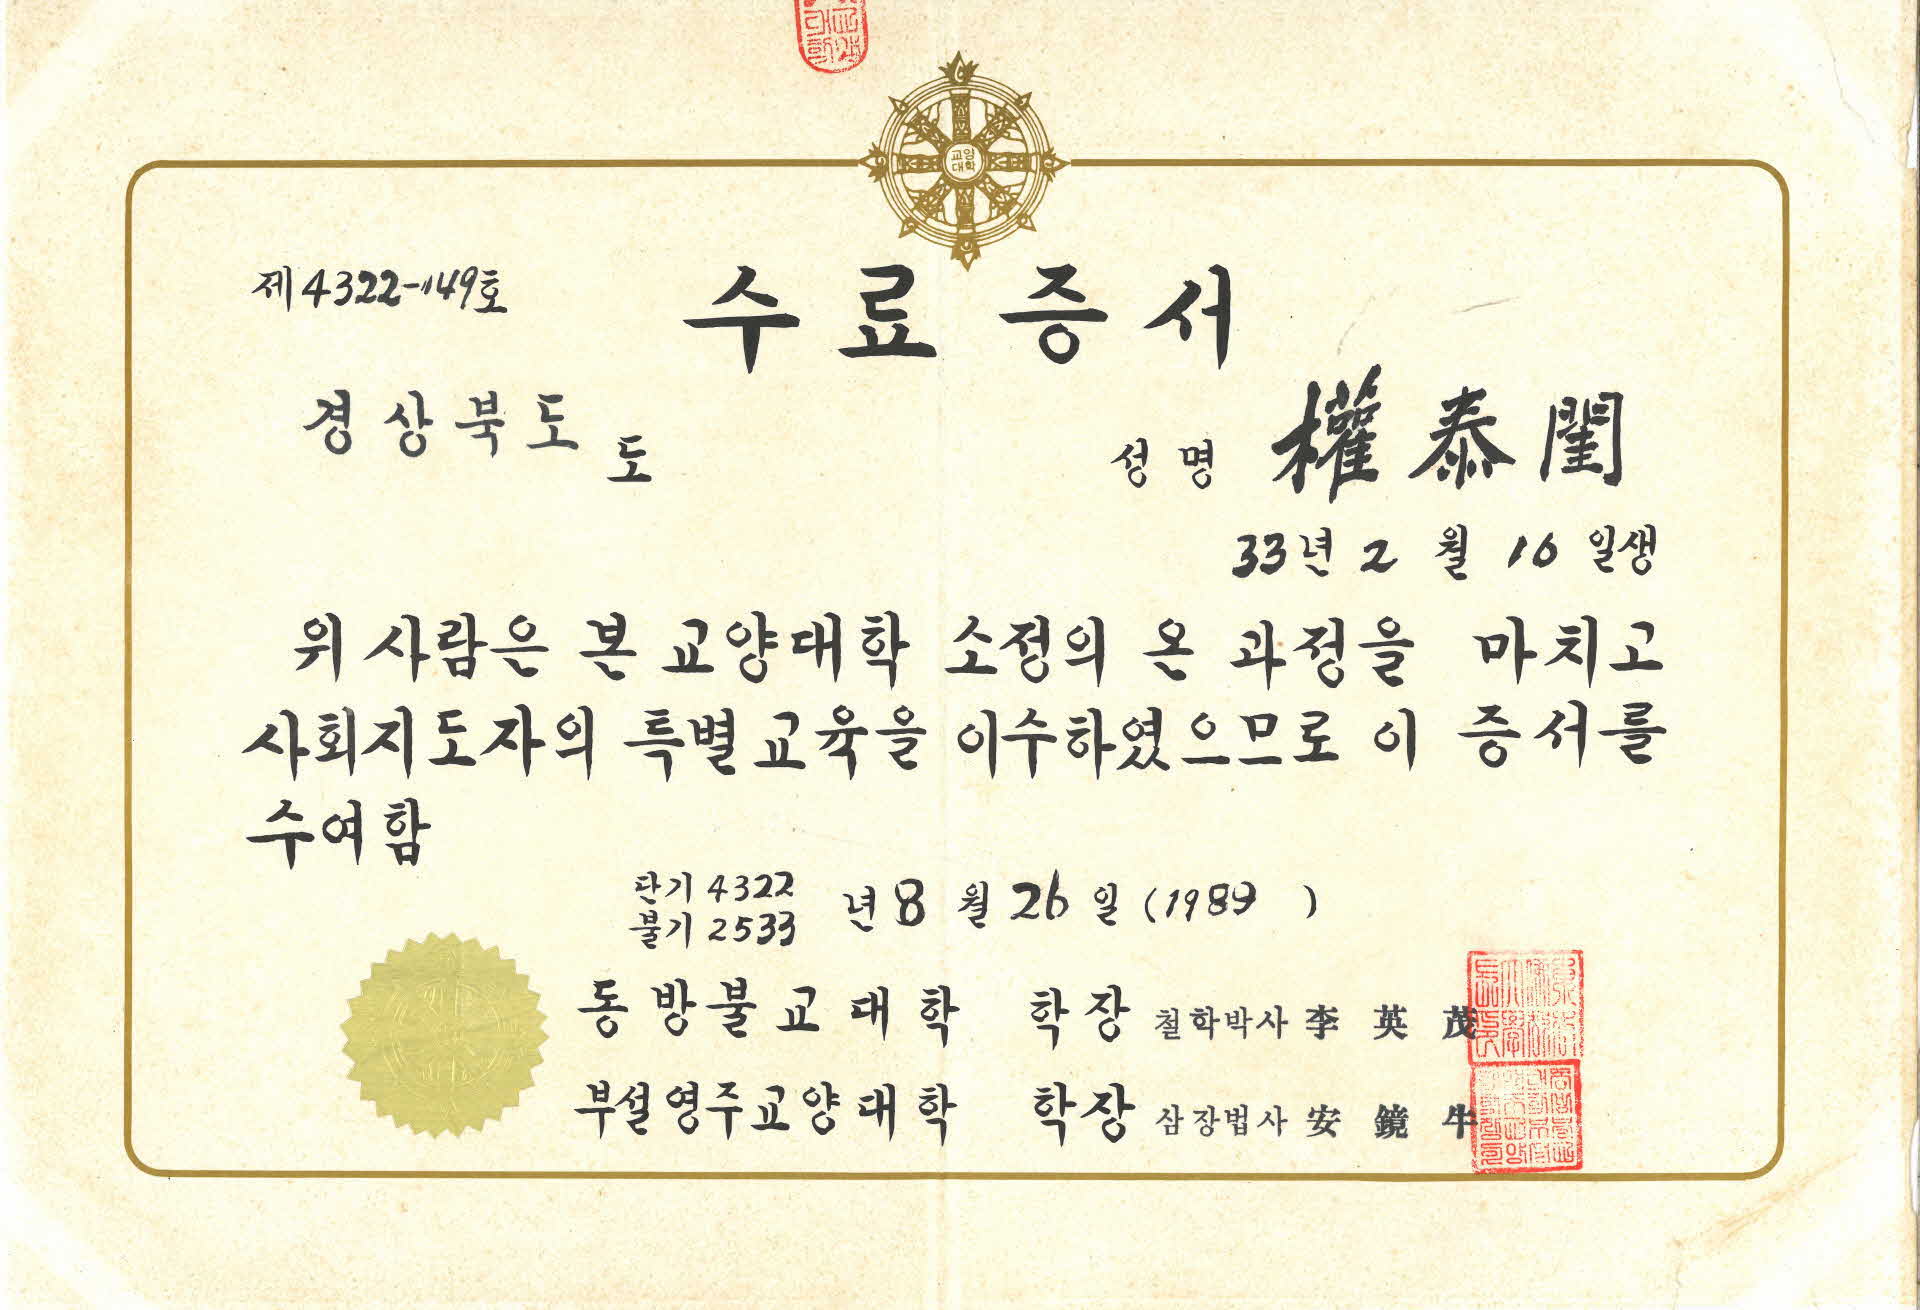 교양
대학
제4322-149호
수료증서
경상북도 도
성명 權泰閨
33년 2월 16일생
위 사람은 본 교양대학 소정의 온 과정을 마치고
사회지도자의 특별교육을 이수하였으므로 이 증서를
수여함
단기 4322
불기 2533
년 8월 26일 (1989 )
동방불교대학 학장 철학박사 李英茂
부설영주교양대학 학장 삼장법사 安鏡牛